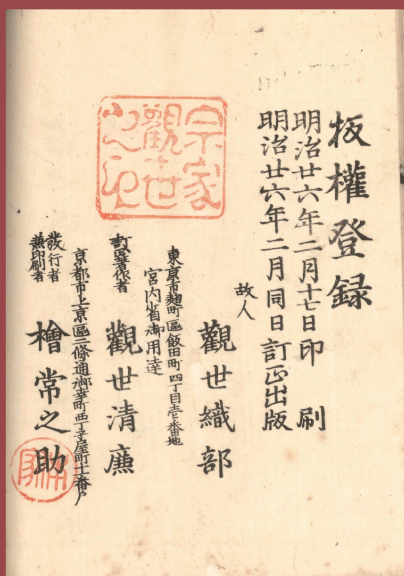 板權登録
明治廿六年二月十七日印刷
明治廿六年二月同日訂正出版
故人
觀世織部
東京市麹町區飯田町四丁目壱番地
宮内省御用達
訂正著作者
觀世清廉
京都市上京區二條通御幸町西丁子屋町十番戸
發行者
兼印刷者
檜常之助
宗家
觀世
之印